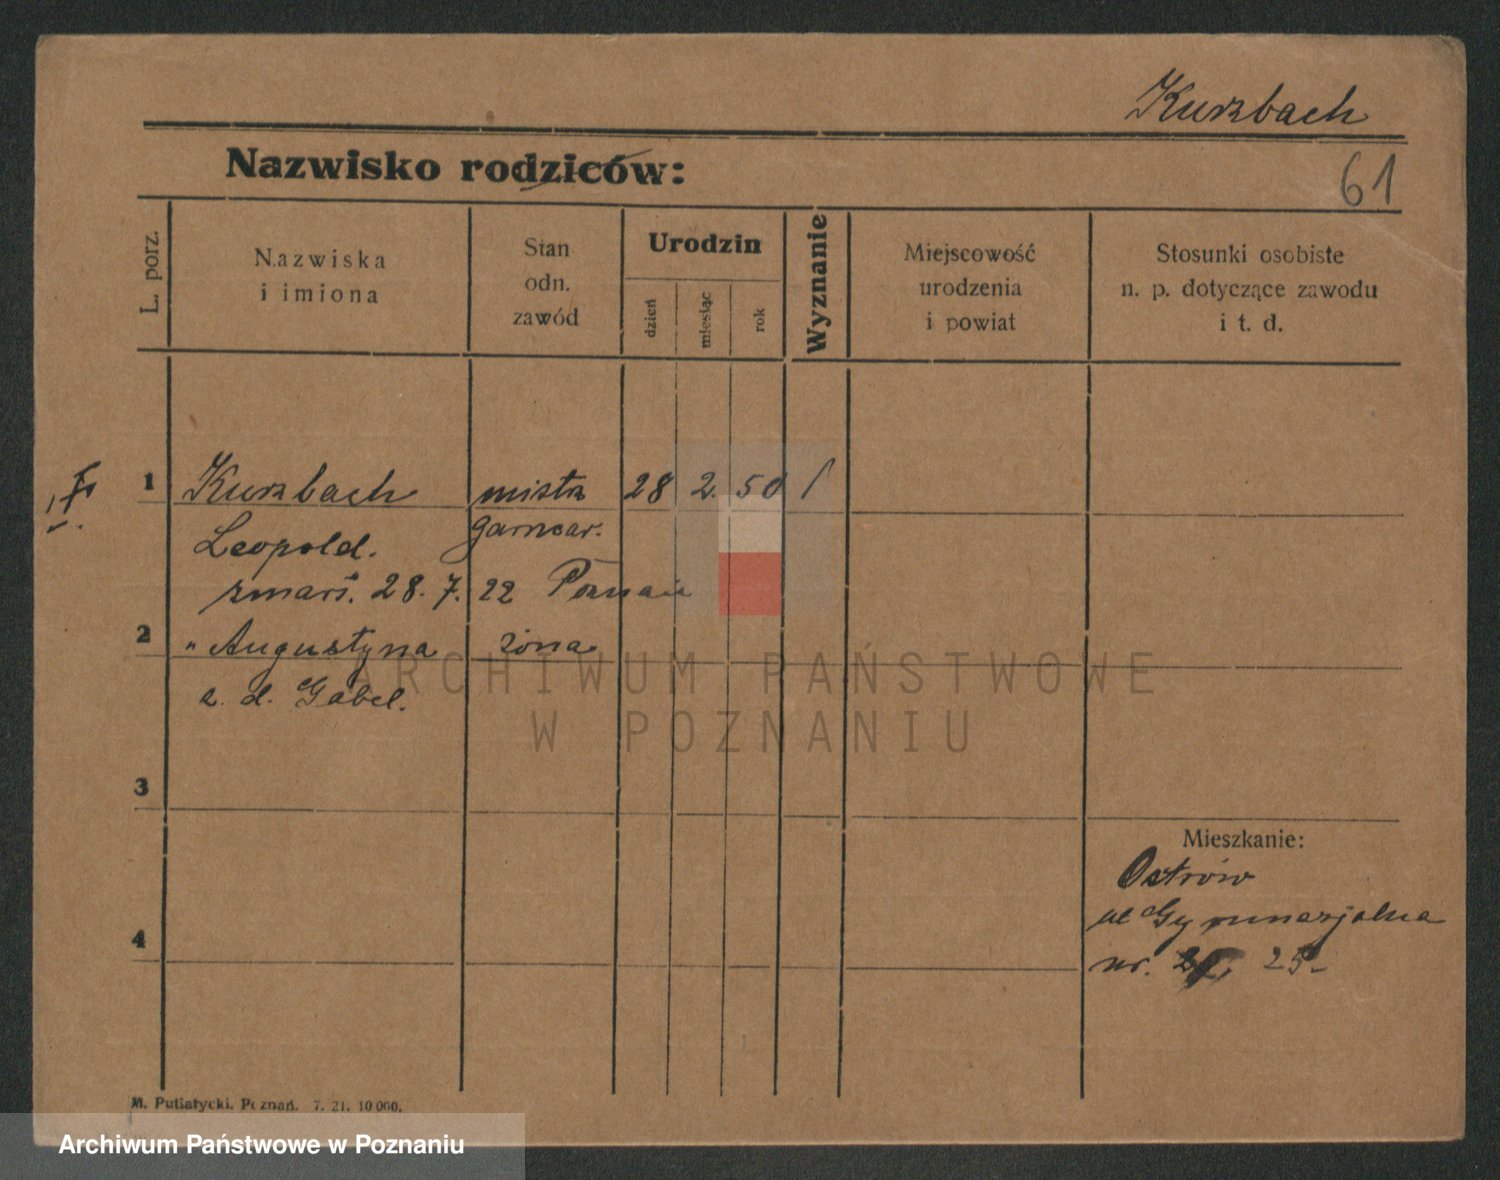 Kurzbach
Nazwisko rodziców:
61
L. porz.
Nazwiska
i imiona
Stan
odn.
zawód
Urodzin
dzień
miesiąc
rok
Wyznanie
Miejscowość
urodzenia
i powiat
Stosunki osobiste
n. p. dotyczące zawodu
i t. d.
1 Kurzbach mistrz 28 2. 50 /
Leopold. garncar.
zmarł. 28. 7. 22 Poznań
2 " Augustyna żona
z. d. Gabel.
3
Mieszkanie:
Ostrów
ul Gymnazjalna
4
nr. 25
M. Putiatycki. Poznań. 7. 21. 10 000.
ARCHIWUM PAŃSTWOWE
W POZNANIU
Archiwum Państwowe w Poznaniu